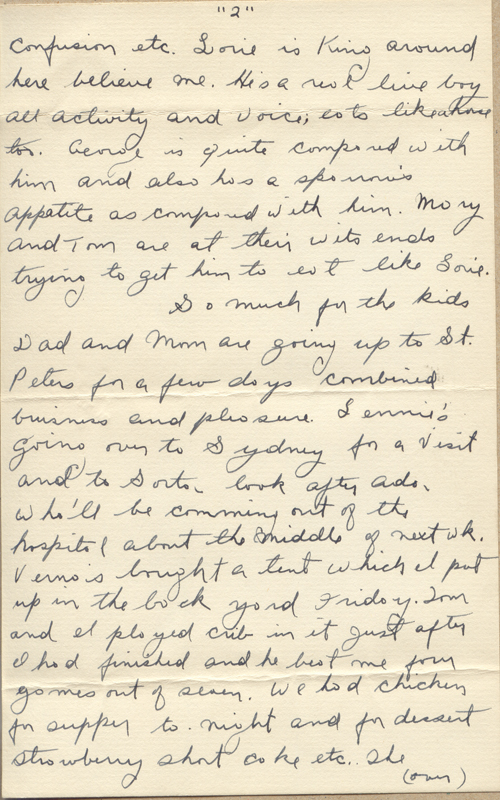 "2"
confusion etc. Lorie is King around
here believe me. He's a real live boy
all activity and voice; eats like a horse
too. George is quite compared with
him and also has a sparrow's
appetite as compared with him. Mary
and Tom are at their wits ends
trying to get him to eat like Lorie.
So much for the kids
Dad and Mom are going up to St.
Peters for a few days combined
buisness and pleasure. Lennie's
going over to Sydney for a visit
and to Sorta. look after Ada.
who'll be comming out of the
hospital about the middle of next wk.
Verna's bought a tent which I put
up in the back yard Friday. Tom
and I played crib in it just after
I had finished and he beat me four
games out of seven. We had chicken
for supper to.night and for dessert
strawberry short cake etc. She
(over)